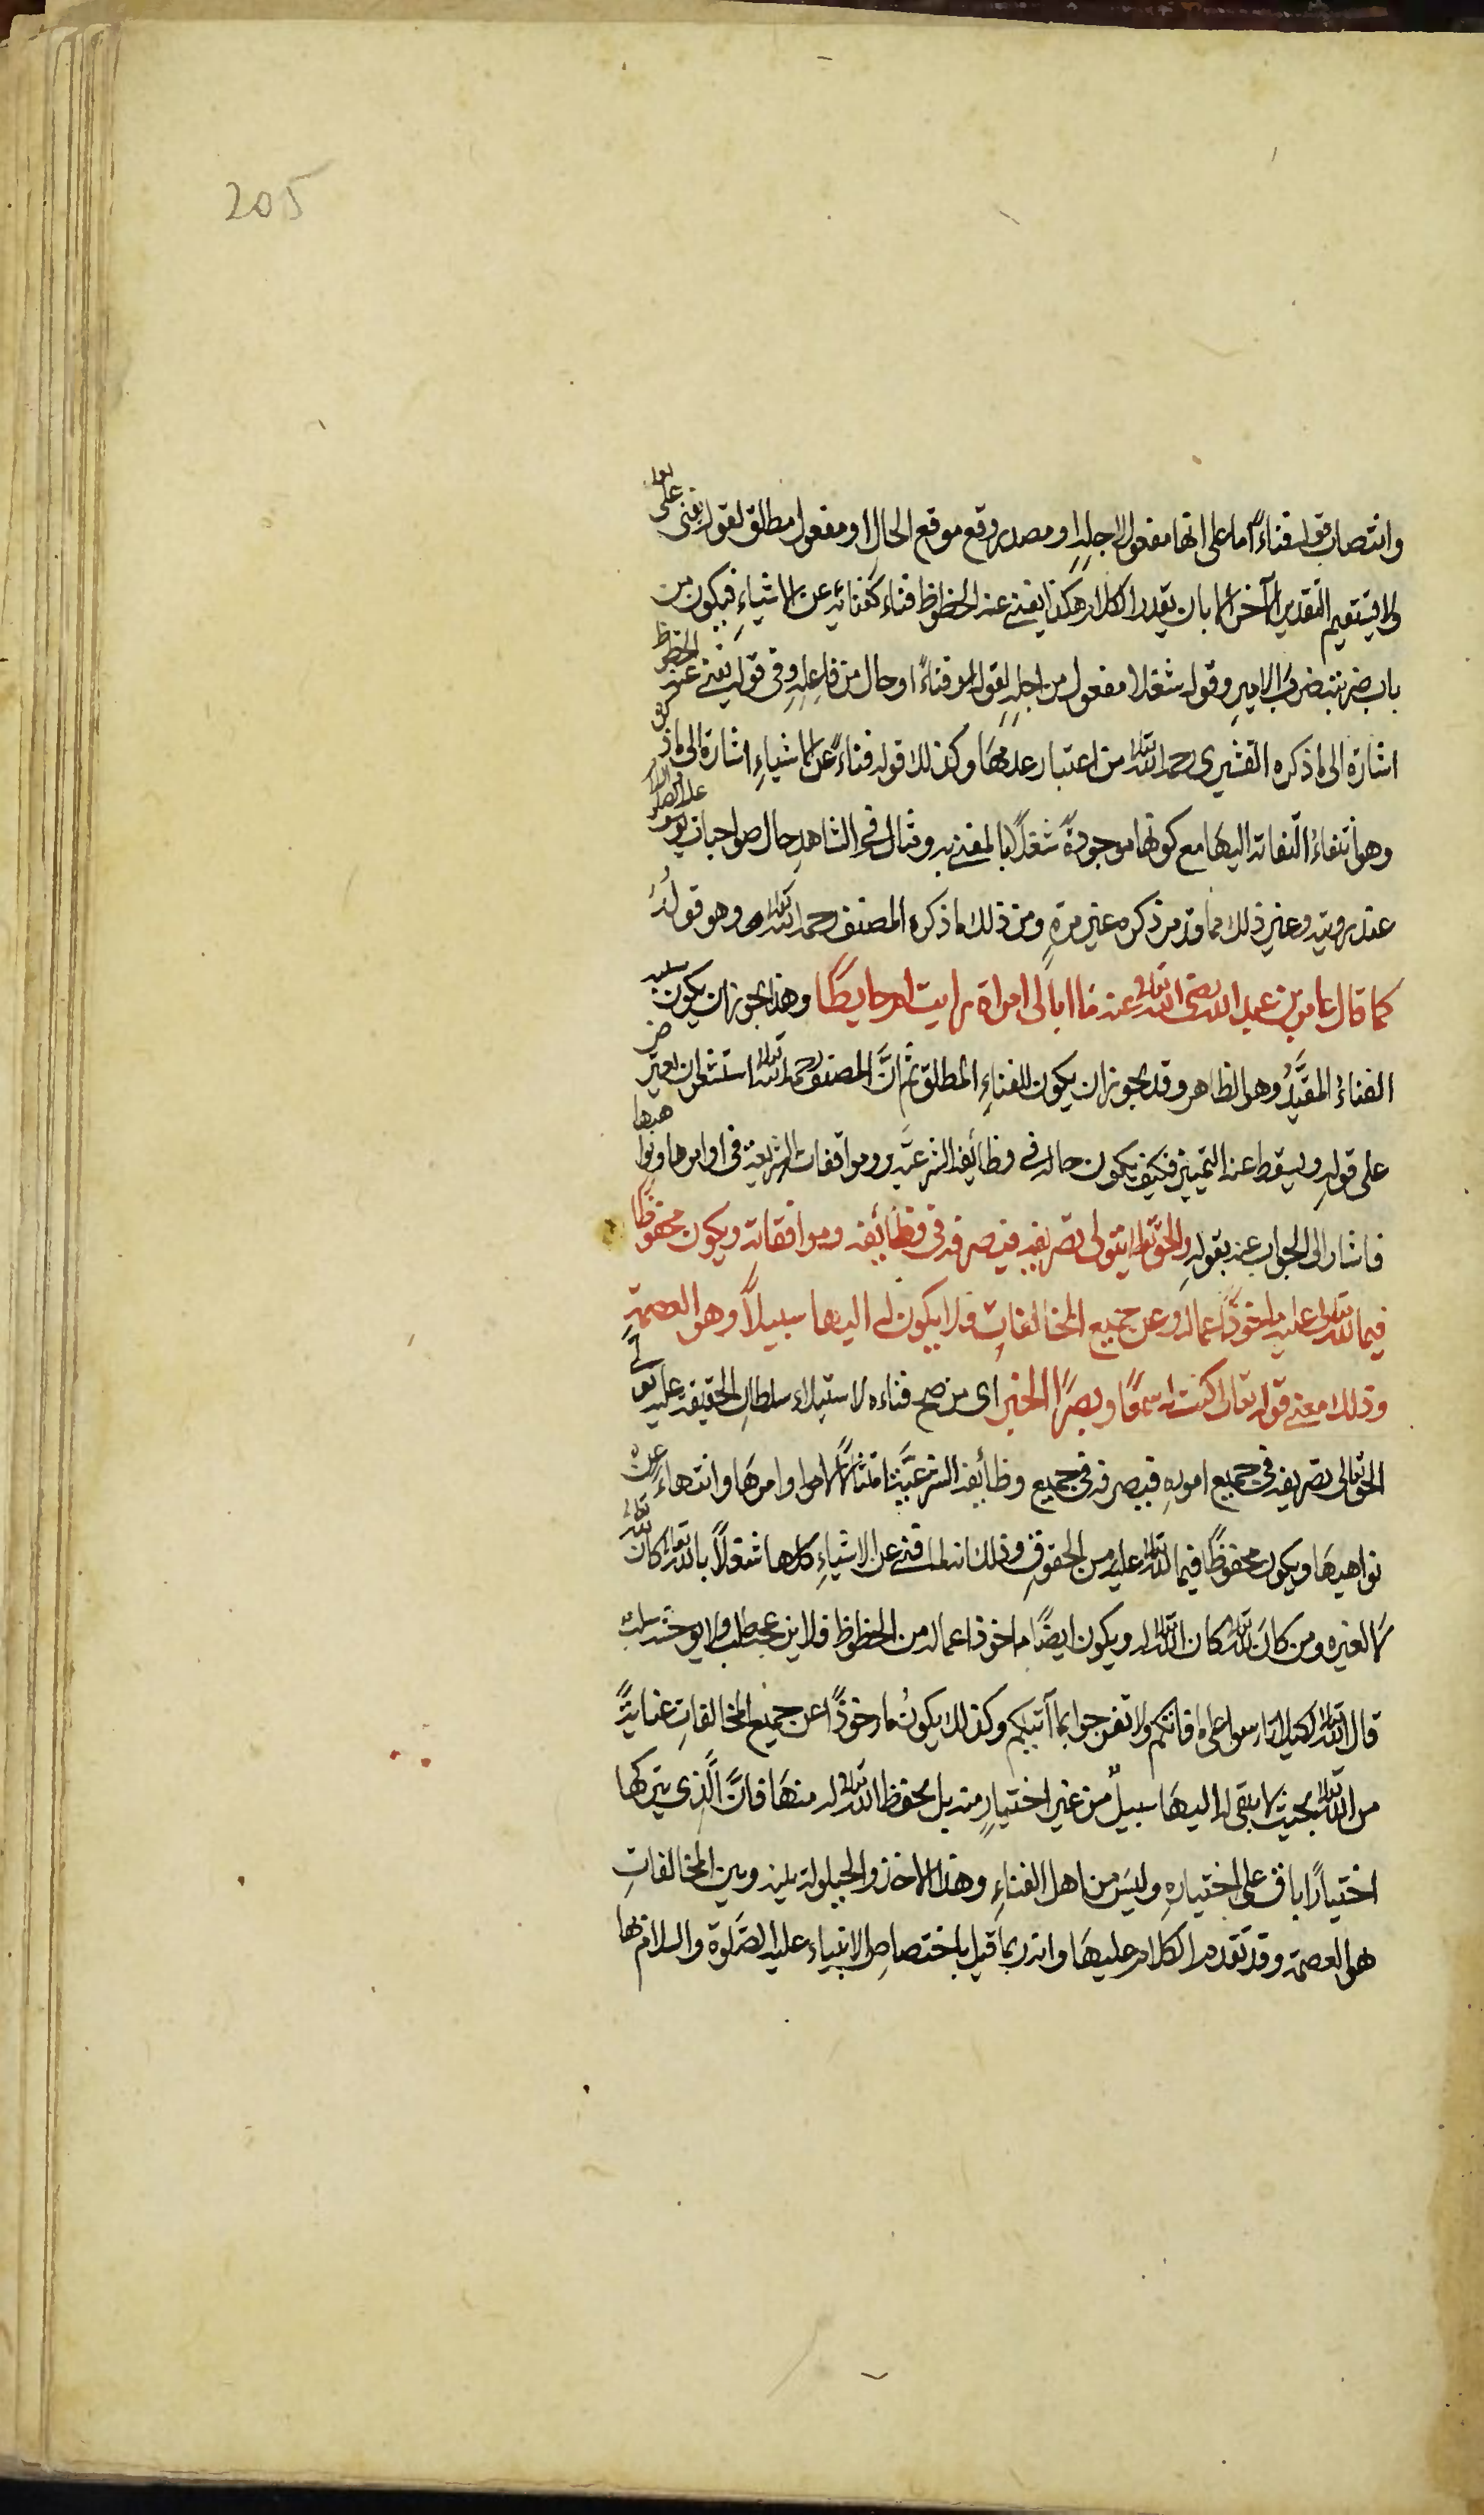 205
وانتصاب قوله فناءً اما على انها مفعول لاجله او مصدر وقع موقع الحال او مفعول مطلق لقوله يفنى على
ولا يستقيم التقدير الآخر الا بان يقدر الكلام هكذا يفنى عنه الحظوظ فناء كفنائه عن الاشياءِ فيكون من
باب ضربته ضربَ الامير وقوله شغلا مفعول من اجله لقوله فناءً او حال من فاعله وفي قوله يفنى عنه الحظوظ
اشارة الى ما ذكره القشيري رحمه الله تعالى من اعتبار عدمها وكذلك قوله فناءً عن الاشياءِ اشارة الى ما ذكر
وهو انتفاءُ التفاته اليها مع كونها موجودةً شغلًا بالمفنى به ومثاله في الشاهد حال صواحبات يوسف عليه الصلوة
عند رؤيته وغير ذلك مما قد مر ذكره غير مرةٍ ومن ذلك ما ذكره المصنف رحمه الله تعالى وهو قولُهُ
كما قال عامر بن عبد الله رضى الله تعالى عنه ما ابالى امراة رايت ام حايطًا وهذا يجوز ان يكون
الفناءُ المقيَّدُ وهو الظاهر وقد يجوز ان يكون للفناءِ المطلق ثم انَّ المصنف رحمه الله تعالى استشعر ان يعترض
على قولهِ ويسقط عنه التمييز فكيف يكون حاله في وظائفه الشرعيّه وموافقات الشريعة في اوامرها ونواهيها
فاشار الى الجواب عنه بقولهِ والحق تعالى يتولى تصريفه فيصرفه في وظائفه وموافقاته ويكون محفوظًا
فيما لله تعالى عليه ماخوذًا عماله وعن جميع المخالفاتِ فلا يكون له اليها سبيلاً وهو العصمة
وذلك معنى قوله تعالى كنت له سمعًا وبصرًا الخبر اى من صح فناءه لاستيلاء سلطان الحقيقة عليه تولى
الحق تعالى تصريفه في جميع امورهِ فيصرفه في جميع وظائفه الشرعيَّة امتثالًا لاوامرها وانتهاءً عن
نواهيها ويكون محفوظًا فيما لله تعالى عليه من الحقوق وذلك انه لما فنى عن الاشياءِ كلها شغلًا بالله تعالى كان لله تعالى
لا لغيره ومن كان لله تعالى كان الله تعالى له ويكون ايضًا ماخوذا عماله من الحظوظ فلا يزعجه طلب ولا يوحشه سلب
قال الله تعالى لكيلا تاسوا على ما فاتكم ولا تفرحوا بما آتيكم وكذلك يكونُ ماخوذًا عن جميع المخالفاتِ عنايةً
من الله تعالى بحيث لا يبقى له اليها سبيلٌ من غير اختيارٍ منه بل بحفظ الله تعالى له منها فانَّ الَّذى يتركها
اختيارًا باق على اختيارهِ وليس من اهل الفناءِ وهذا الاخذ والحيلولة بينه وبين المخالفاتِ
هو العصمة وقد تقدم الكلام عليها وانه ربما قيل باختصاص الانبياء عليه الصَّلوة والسلام بها